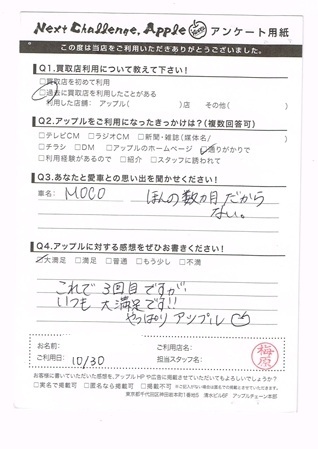 Next Challenge. Apple アンケート用紙
この度は当店をご利用いただきありがとうございました。
Q1.買取店利用について教えて下さい!
□買取店を初めて利用
□過去に買取店を利用したことがある
利用した店舗: アップル( )店 その他( )
Q2.アップルをご利用になったきっかけは?(複数回答可)
□テレビCM □ラジオCM □新聞・雑誌(媒体名/ )
□チラシ □DM □アップルのホームページ □通りがかりで
□利用経験があるので □紹介 □スタッフに誘われて
Q3.あなたと愛車との思い出を聞かせください!
車名: MOCO ほんの数ヵ月だから
ない。
Q4.アップルに対する感想をぜひお書きください!
□大満足 □満足 □普通 □もう少し □不満
これで3回目ですが
いつも大満足です!!
やっぱりアップル
お名前: ご利用店名:
ご利用日: 10/30 担当スタッフ名:
梅原
お客様に書いていただいた感想を、アップルHPや広告に掲載させていただいてもよろしいでしょうか?
□実名で掲載可 □匿名なら掲載可 □掲載不可
東京都千代田区神田岩本町1番地5 清水ビル6F アップルチェーン本部